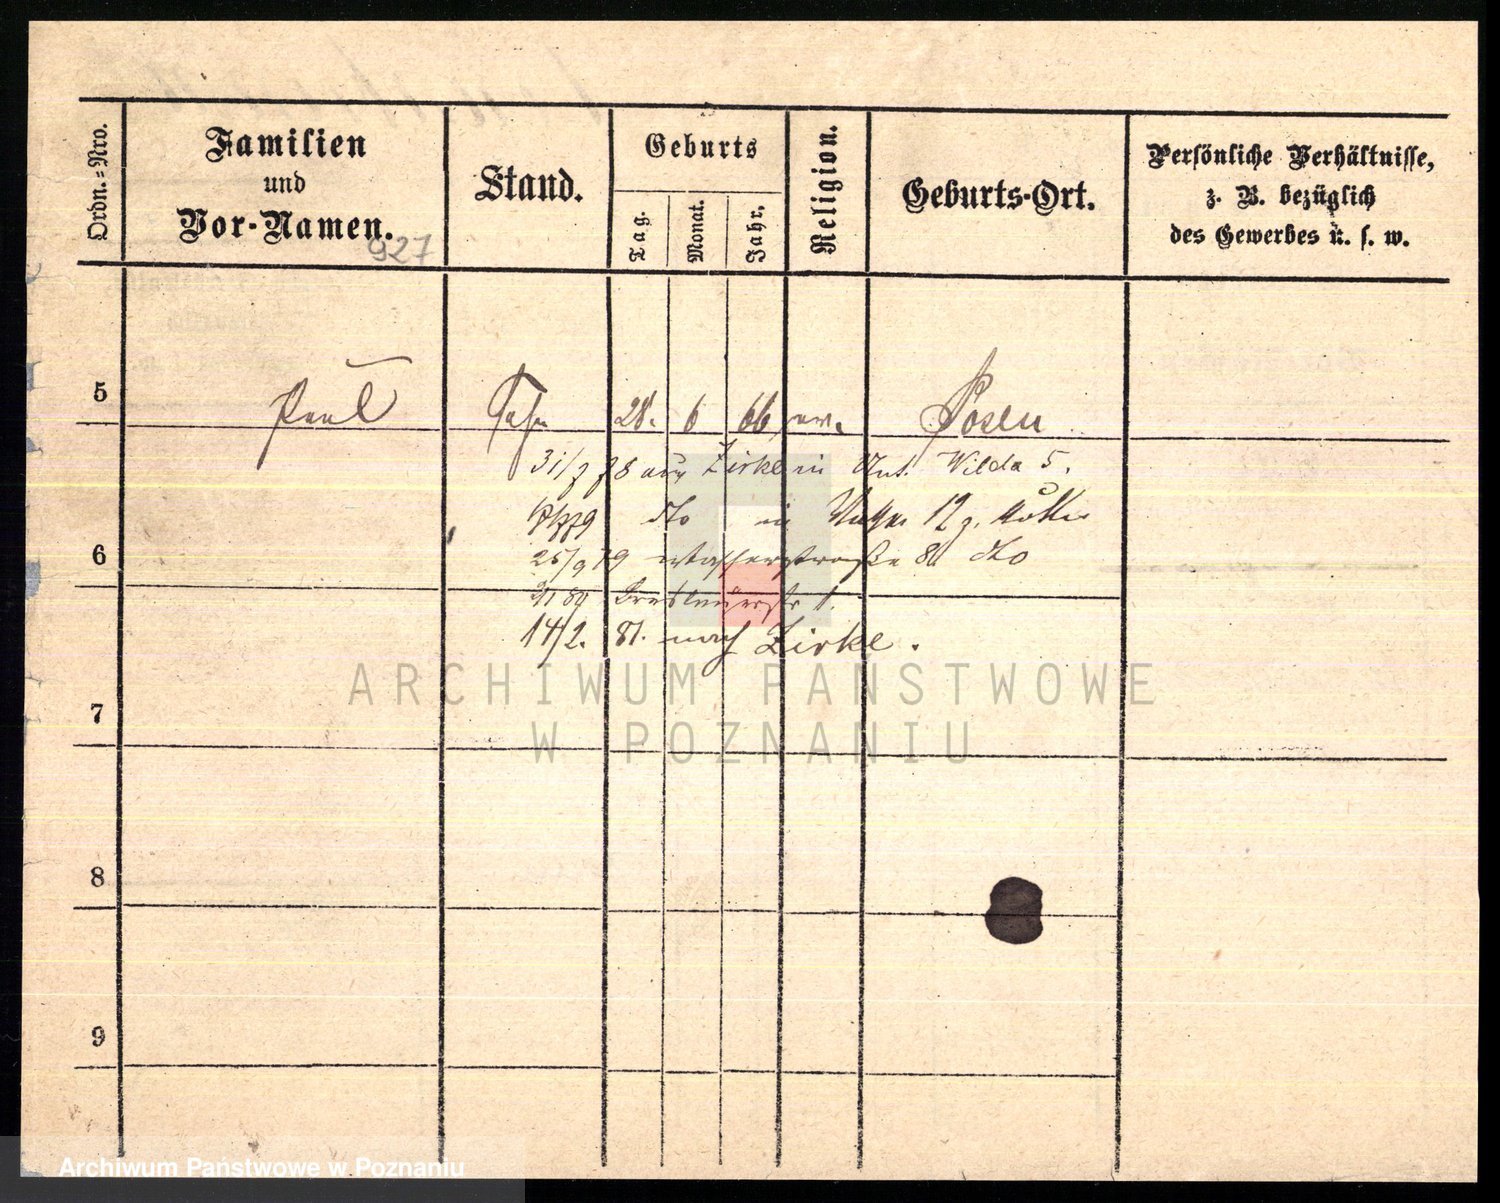 Ordn.-Nro.
Familien
und
Vor-Namen.
927
Stand.
Geburts
Tag.
Monat.
Jahr.
Religion.
Geburts-Ort.
Persönliche Verhältnisse,
z. B. bezüglich
des Gewerbes u. s. w.
5 Paul Sohn 28. 6 66 ev. Posen
78 aus Zirke in Wilda 5.
dto in 12
6
25/9 79 Wasserstraße 8 dto
Breslauerstr 1.
14/2. 81. nach Zirke.
ARCHIWUM PAŃSTWOWE
W POZNANIU
7
8
9
Archiwum Państwowe w Poznaniu